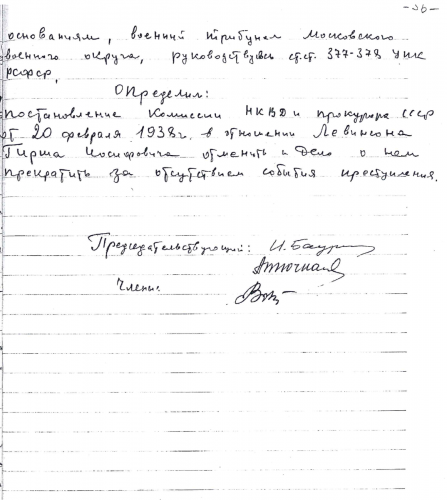 -26-
основаниям, военный трибунал Московского
военного округа, руководствуясь ст.ст. 377-378 УПК
РСФСР,
Определил:
Постановление Комиссии НКВД и прокурора СССР
от 20 февраля 1938г. в отношении Левинсона
Гирша Иосифовича отменить и дело о нем
прекратить за отсутствием события преступления.
Председательствующий:
Члены: